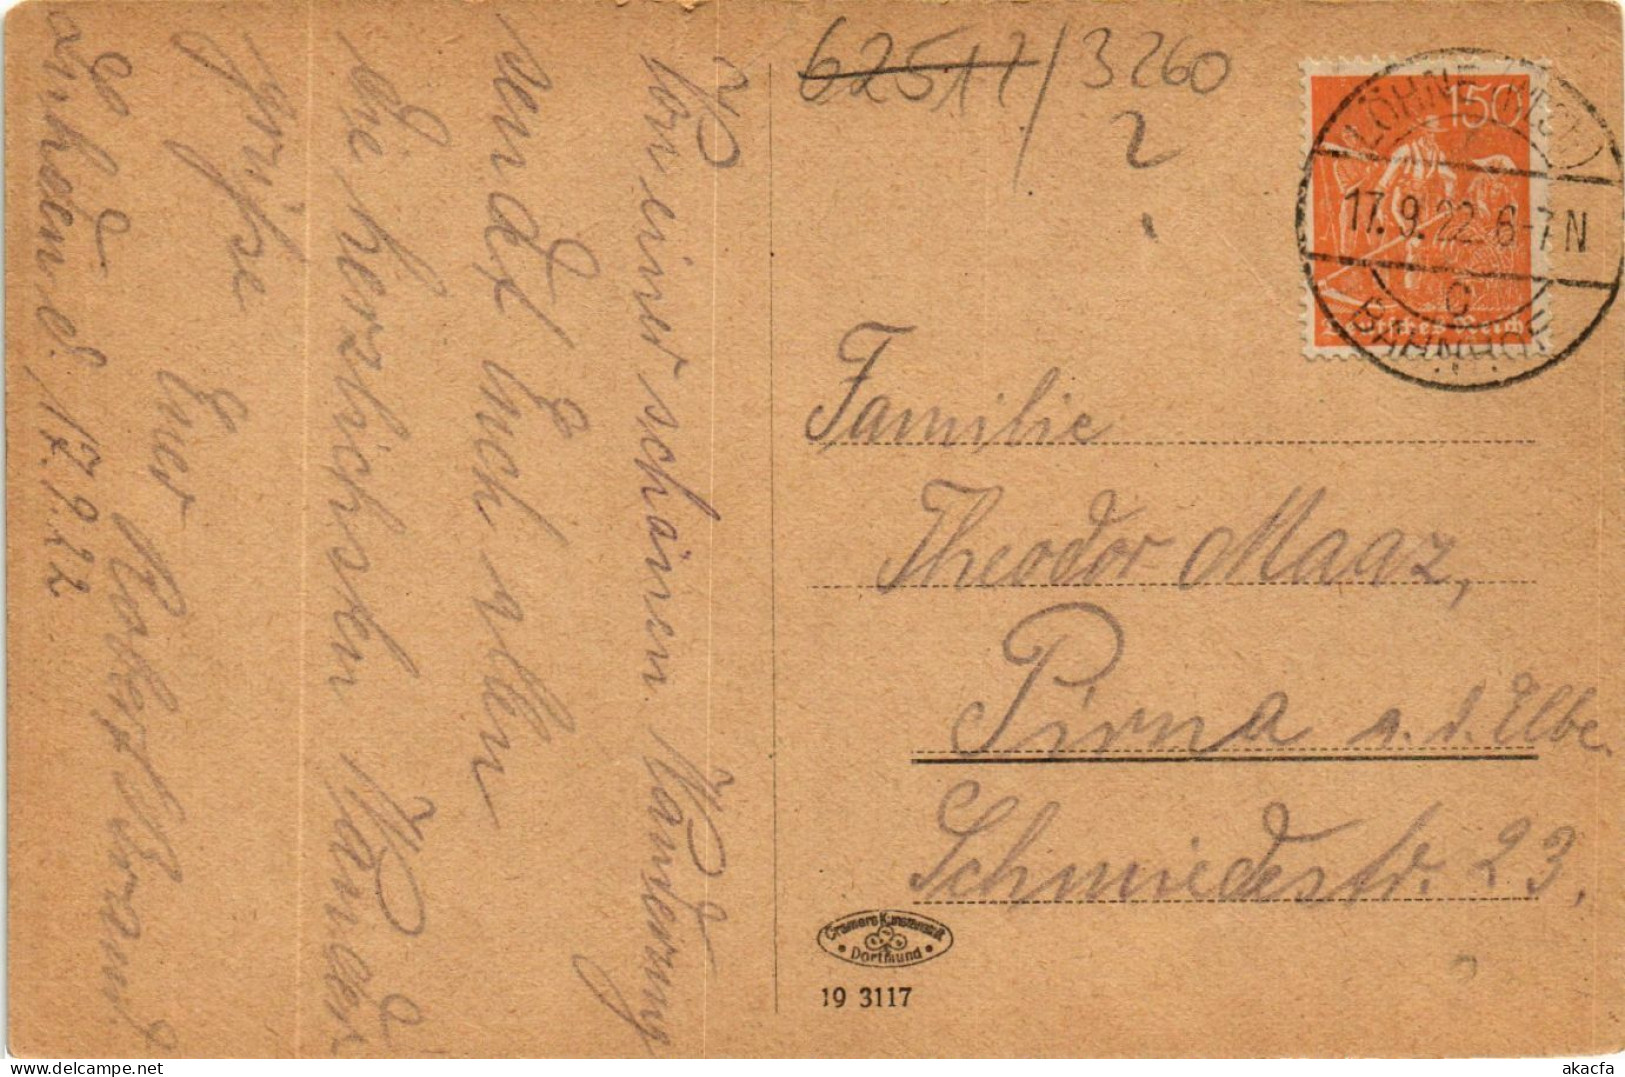 62517/3260
2
LÖHNE (WESTF)
17.9.22 6-7N
c
BAHNHOF
150
Deutsches Reich
Familie
Theodor Maaz,
Pirna a. d. Elbe.
Schmiedestr. 23.
Cramers Kunstanstalt
Dortmund
19 3117
Von einer schönen Wanderung
sendet Euch allen
die herzlichsten Wander
grüße
Euer
Robert
d. 17.9.22
akacfa